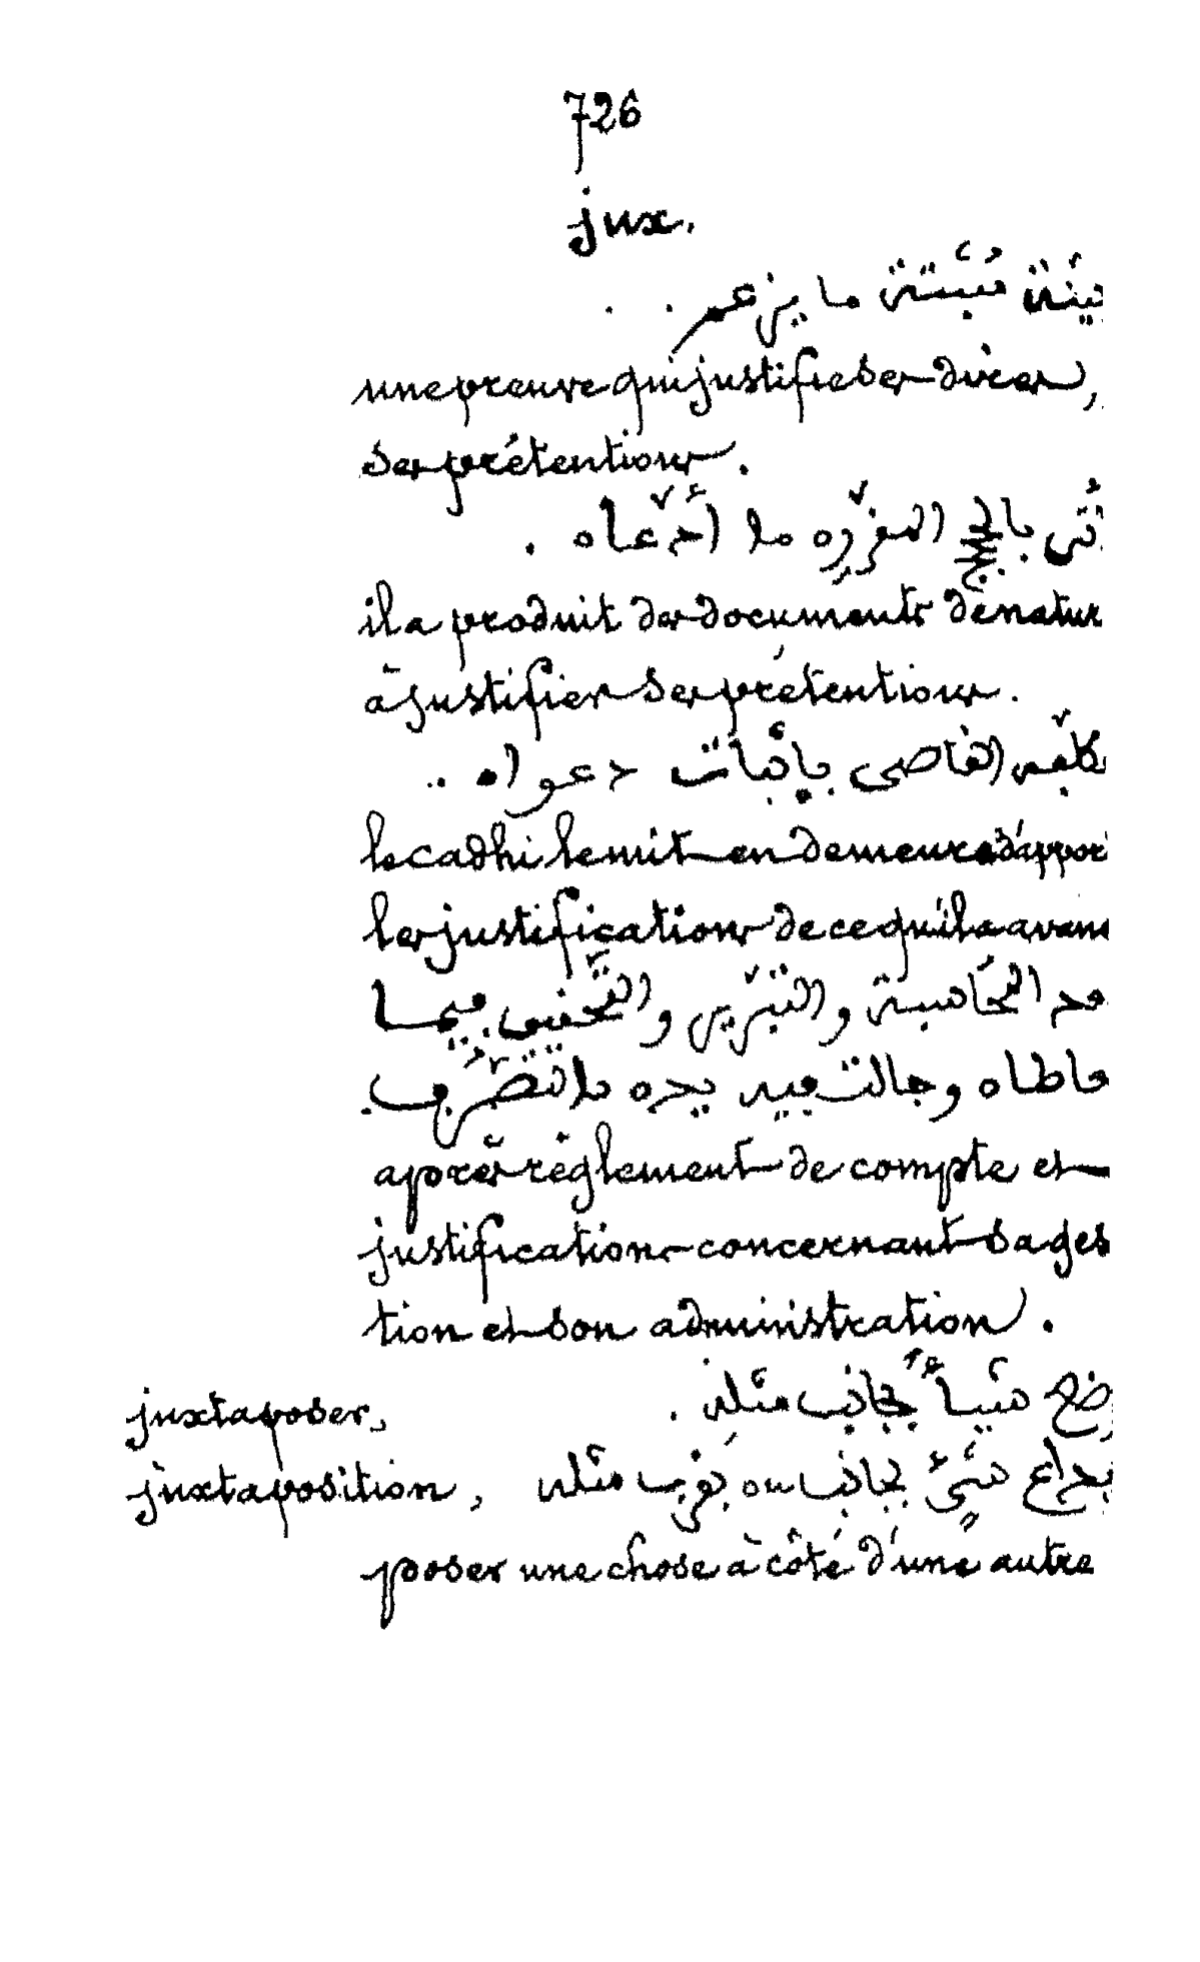 726
jux.
بيّنة مُثبتة ما يزعم . .
une preuve qui justifie ses dires,
ses prétentions.
أتى بالحجج المقرّره ما ادّعاه .
il a produit des documents de natur
à justifier ses prétentions.
كلّفه القاضى بإثبات دعواه ..
le cadhi le mit en demeure d'appor
les justifications de ce qu'il a avanc
بعد المحاسبة والتبرير والتحقيق فيما
عاطاه وجالت فيه يده بالتصرّف
après règlement de compte et
justifications concernant sa ges
tion et son administration.
juxtaposer, وضع شيأً بجانب مثله .
juxtaposition, ايداع شيءٍ بجانب ou بقرب مثله
poser une chose à côté d'une autre